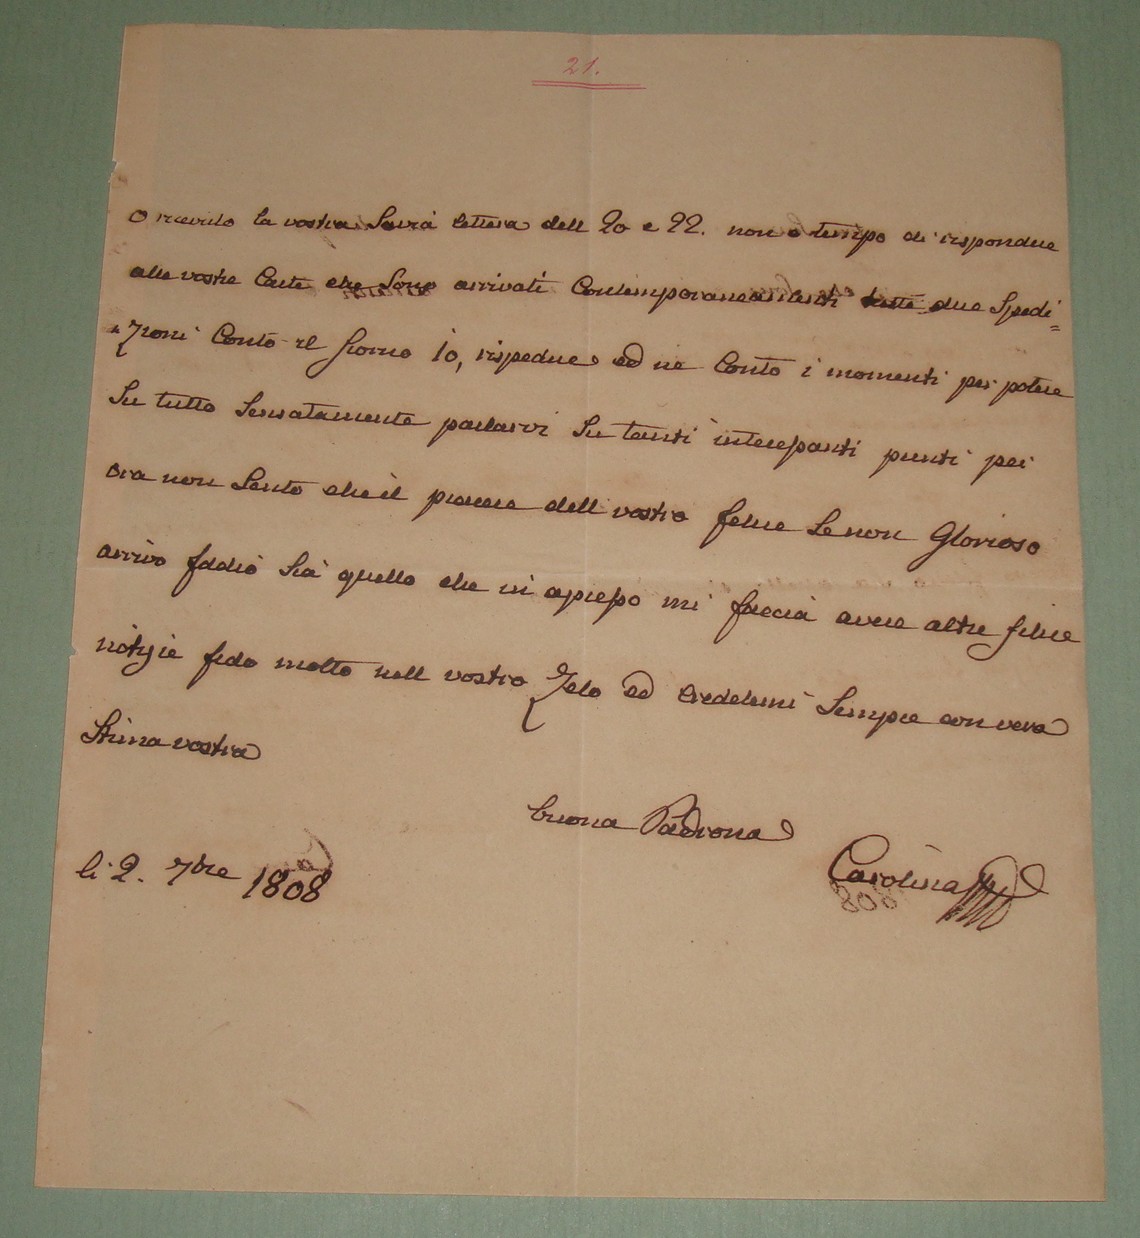 21.
O ricevuto la vostra Savia lettera dell 20 e 22. non o tempo di rispondere
alle vostre Carte che Sono arrivati Contemporaneamenti tutte due Spedi=
=zioni Conto il Giorno 10, rispedire ed ne Conto i momenti per potere
Su tutto Sensatamente parlarvi Su tanti interessanti punti per
ora non Sento che il piacere dell vostro felice Se non Glorioso
arrivo Iddio Sia quello che in apresso mi faccia avere altre felice
notizie fido molto nell vostro Zelo ed Credetemi Sempre con vera
Stima vostra
buona Padrona
Carolina
li 2. 7bre 1808